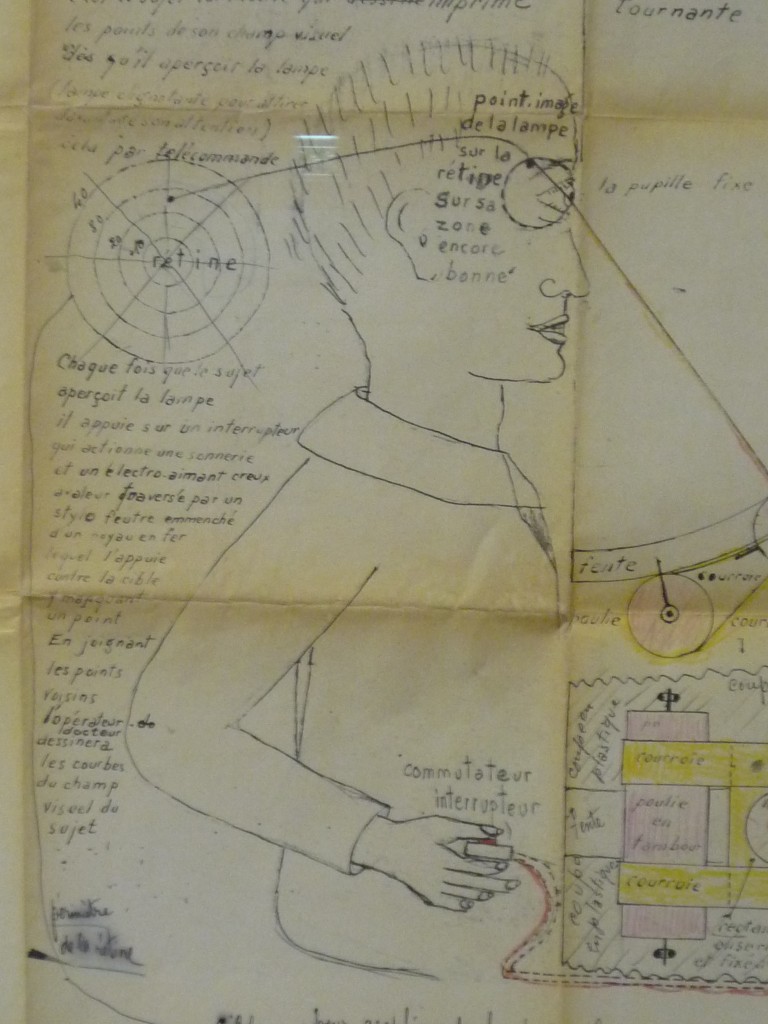 qui dessine imprime
les points de son champ visuel
dès qu'il aperçoit la lampe
(lampe clignotante pour attirer
son attention)
cela par télécommande
tournante
point. image
de la lampe
sur la
rétine
sur sa
zone
encore
bonne
la pupille fixe
40
30
20
10
rétine
Chaque fois que le sujet
aperçoit la lampe
il appuie sur un interrupteur
qui actionne une sonnerie
et un électro-aimant creux
avaleur traversé par un
stylo feutre emmenché
d'un noyau en fer
lequel l'appuie
contre la cible
y marquant
un point
En joignant
les points
voisins
l'opérateur-do
docteur
dessinera
les courbes
du champ
visuel du
sujet
fente
courroie
poulie
commutateur
interrupteur
coupe en
plastique
courroie
fente
poulie
en
tambour
coupe
en plastique
courroie
et fixé
périmètre
de la rétine